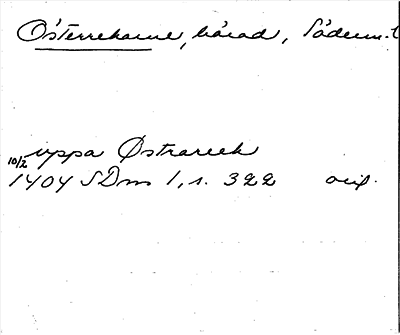 Österrekarne, härad, Söderm.l
uppa Østrareek
10/2 1404 SDns 1, s. 322 orig.